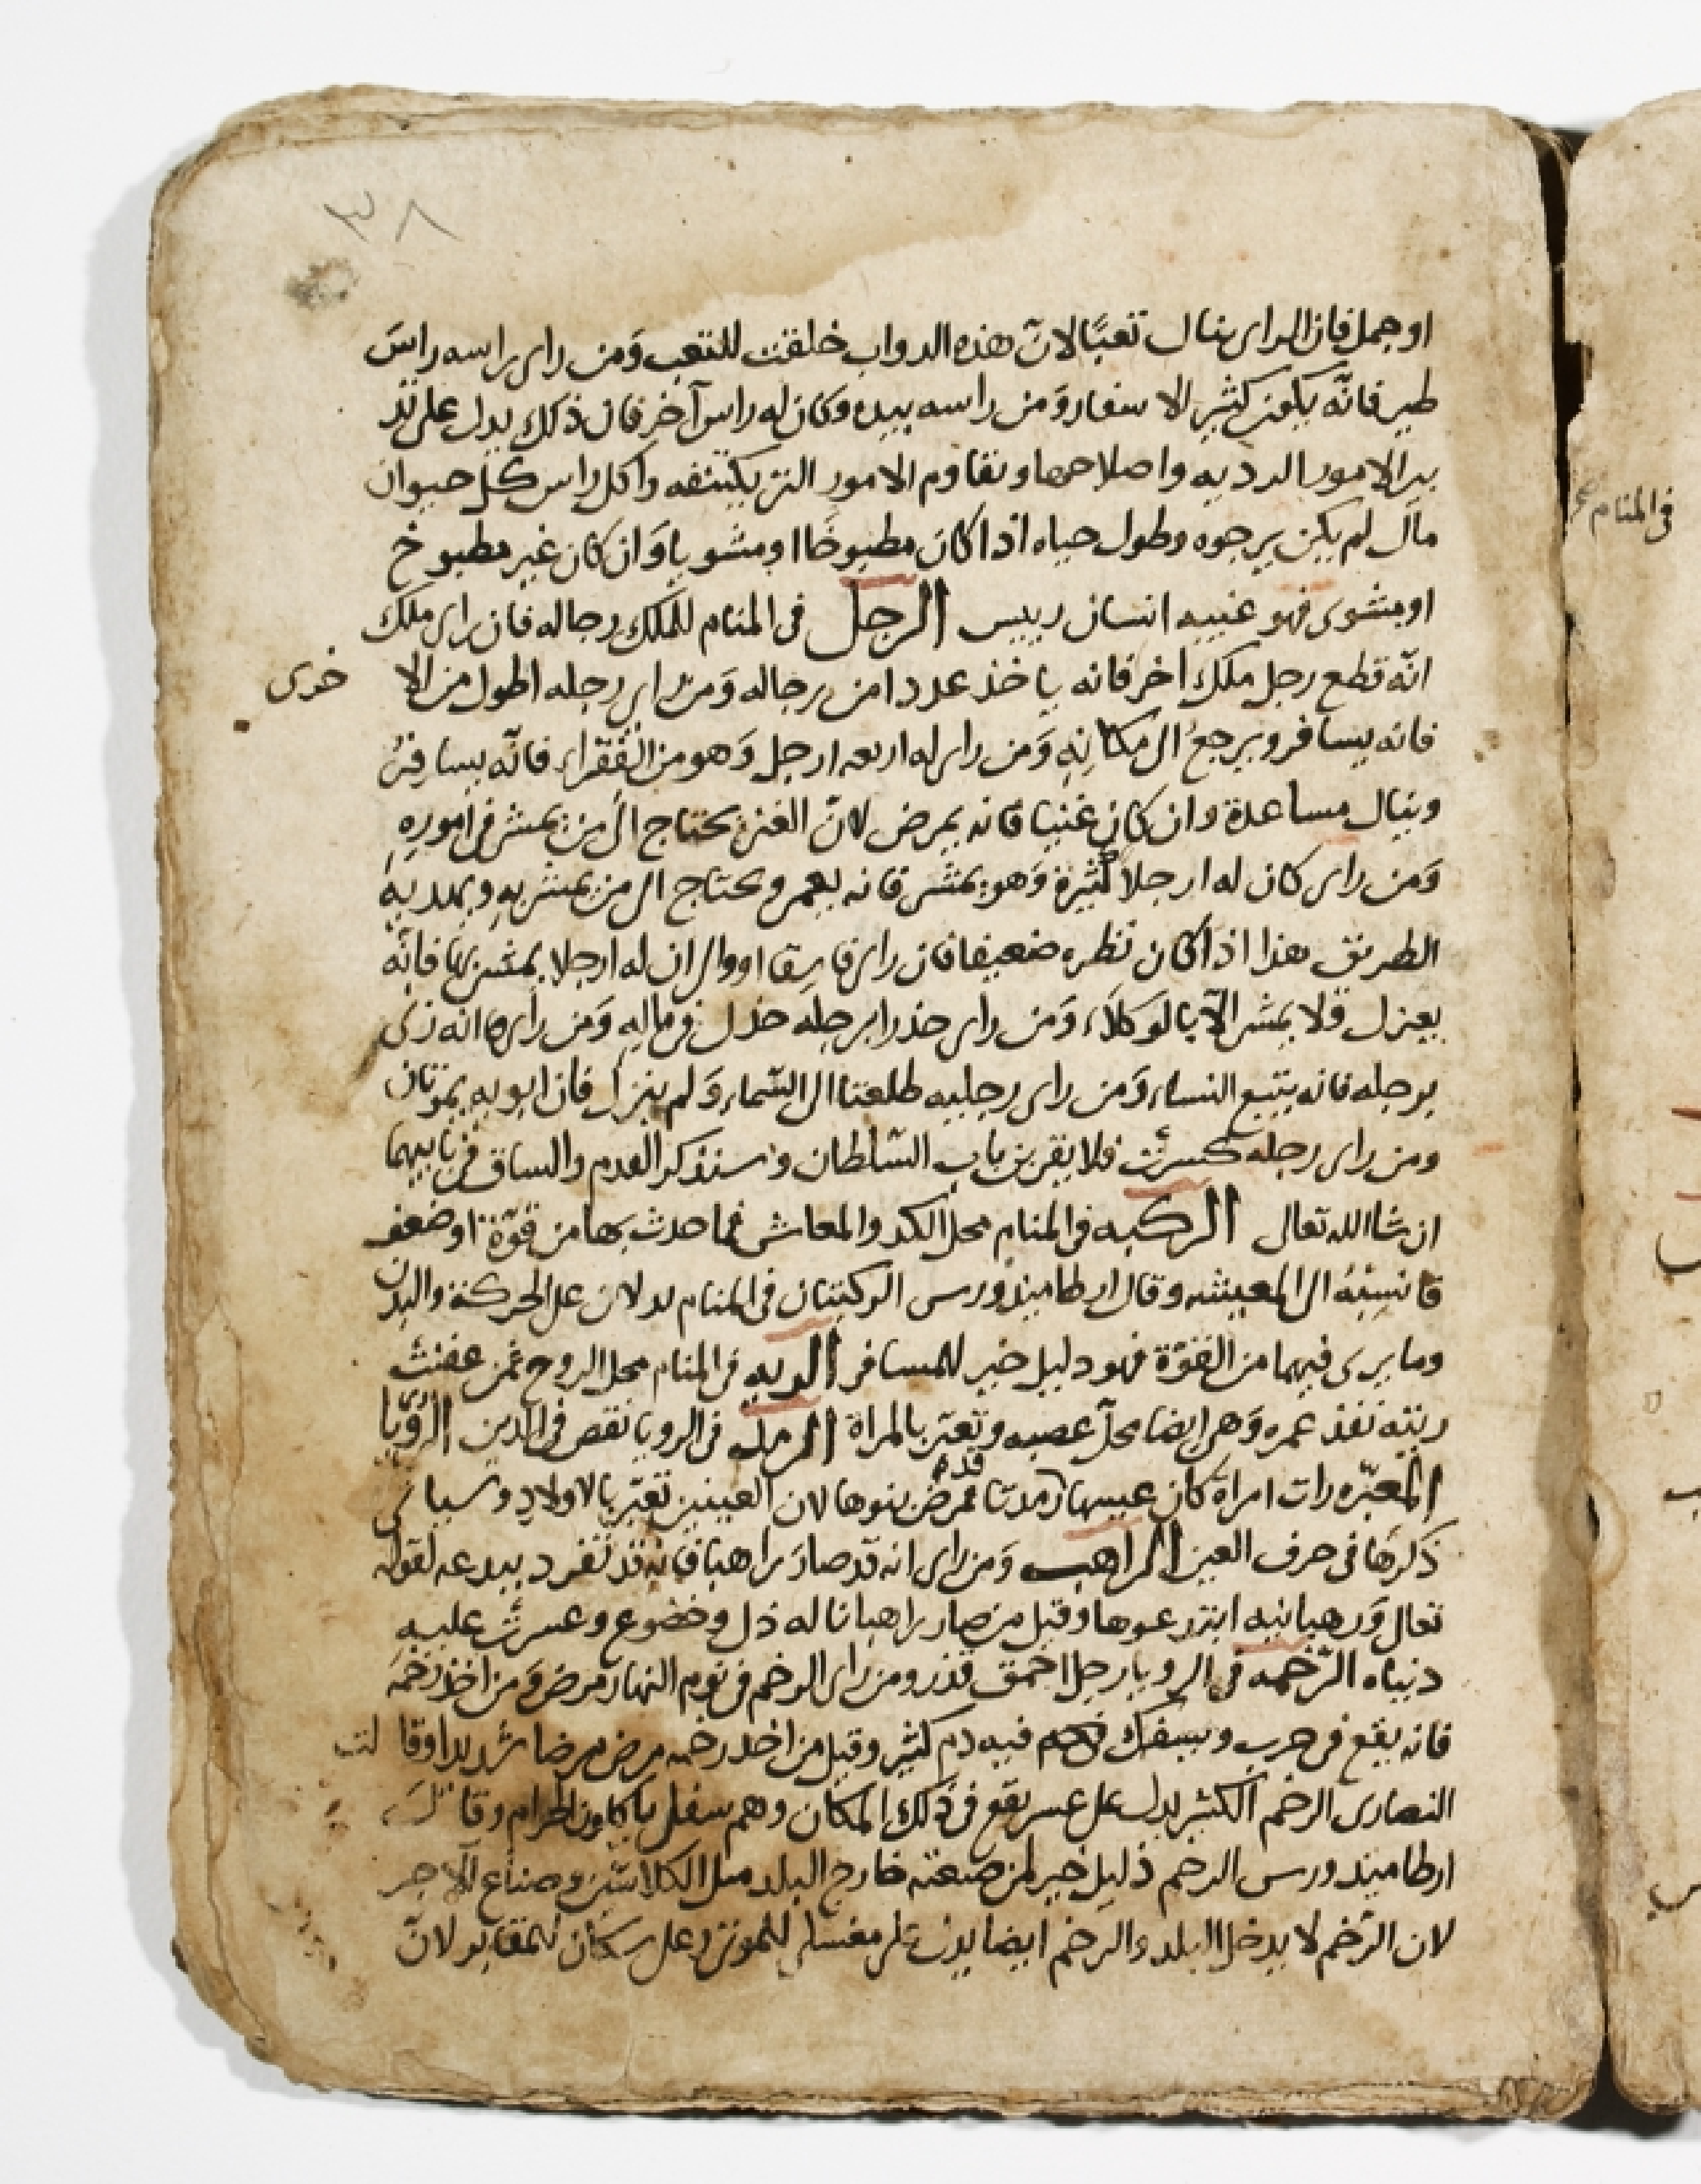 ٣٨
او جمل فان الراى ينال تعبًا لانّ هذه الدواب خلقت للتعب وَمن راى راسه راسَ
طير فانّه يكون كثير الاسفار وَمن راسه بيده وكان له راس آخر فان ذلك يدل على تد
بير الامور الرديه واصلاحها ونقاوم الامور التى يكتنفه واكل راس كلّ حيوان
مال لم يكن يرجوه وطول حياه اذا كان مطبوخًا او مشويا وَان كان غير مطبوخ
او مشوى فهو غيبه انسان رييس الرجل فى المنام للملك رجاله فان راى ملك
انّه قطع رجل ملك اخر فانه ياخذ عددا من رجاله وَمن راى رجله اطول من الا خرى
فانه يسافر ويرجعُ الى مكانِهِ وَمن راى له اربعه ارجل وَهو من الفُقراء فانّه يسافرُ
وينال مساعدة وان كان غنيا فانه يمرض لانّ الغنى يحتاج الى من يمشى فى امورِهِ
وَمن راى كان له ارجلاً كثيرة وَهو يمشى فانه يعمى ويحتاج الى من يمشى بهِ ويهديهِ
الطريق هذا اذا كان نظره ضعيفا فان راى فاسِقا او والى ان له ارجلا يمشى بها فانّه
يعزل فلا يمشى الاّ بالوكلاَء وَمن راى خدرا برجله خذل فى مالِهِ وَمن راى كانه زنى
برجله فانه يتبع النساء وَمن راى رجليه طلعتا الى السّماء وَلم ينزل فان ابويهِ يموتان
ومن راى رجله كُسرتْ فلا يقربن باب السّلطان وسنذكر القدم والساق فى بابيهما
ان شا الله تعالى الركبه فى المنام محل الكد والمعاش فما حدث بها من قوّةٍ او ضعف
فانسِبْهُ الى المعيشه وقال ارطاميدورس الركبتان فى المنام يدلان على الحركة والبدن
وما يرى فيهما من القوّة فهو دليل خير للمسافر الريه فى المنام محل الروح فمن عفنت
ريته نفذ عمره وَهى ايضا محلّ عصبه وتعبّر بالمراة الرمله فى الرويا نقص فى الدين الرُّؤيا
المعبّره رات امراة كان عينيها قد رمدتا فمرض بنوها لان العينين تعبّر بالاولادِ وسياتى
ذكرهَا فى حرف العين الراهب وَمن راى انه قد صار راهبا فانه قد تفرد ببدعه لقوله
تعالى وَرهبانيه ابتدعوها وقيل من صار راهبا ناله ذل وخضوع وعسرت عليه
دنياه الرّخمه فى الرويا رجل احمق قذر ومن راى الرخم فى نوم النهار مرض وَمن اخذ رخمَة
فانه يقع فى حرب ويسفك فيه دم كثير وقيل من اخذ رخمه مرض مرضا شديدا وقا لت
النصارى الرخم الكثير يدل على عسر يقع فى ذلك المكان وهم سفل ياكلون الحرام وقا ل
ارطاميدورس الرخم دليل خير لمن صنعته خارج البلد مثل الكلاسَّين وصناع الآجر
لان الرّخم لا يدخل البلد والرخم ايضا يدل على مغسلى الموتى وعلى سكان المقابر لانّ
فى المنام